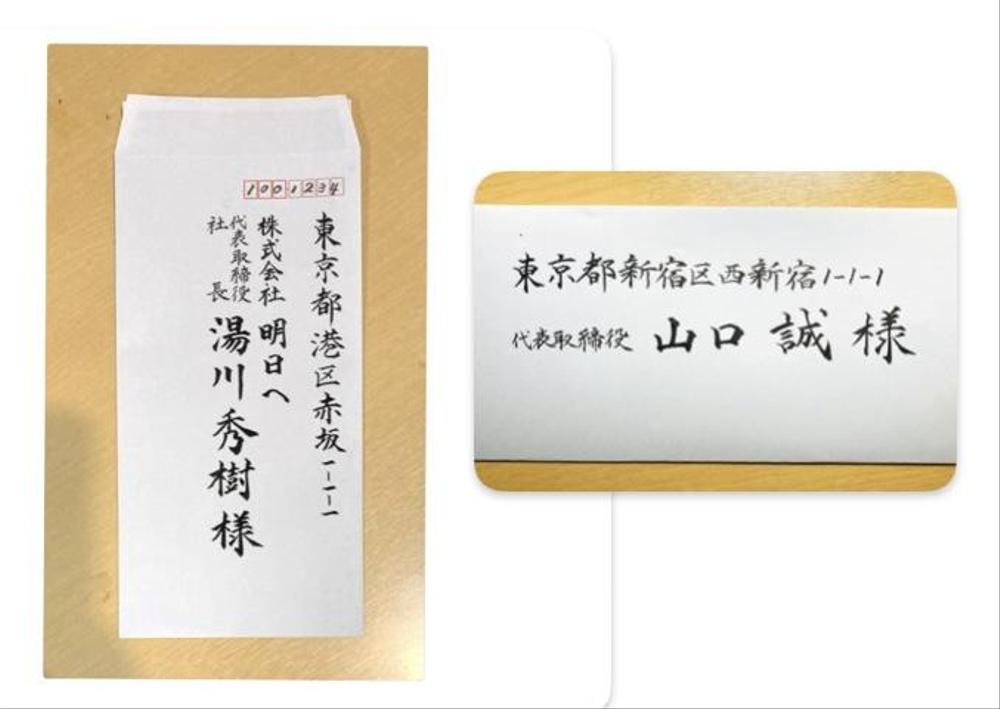 1001234
東京都港区赤坂一ー一ー一
株式会社 明日へ
代表取締役
社長
湯川秀樹様
東京都新宿区西新宿1-1-1
代表取締役 山口 誠 様